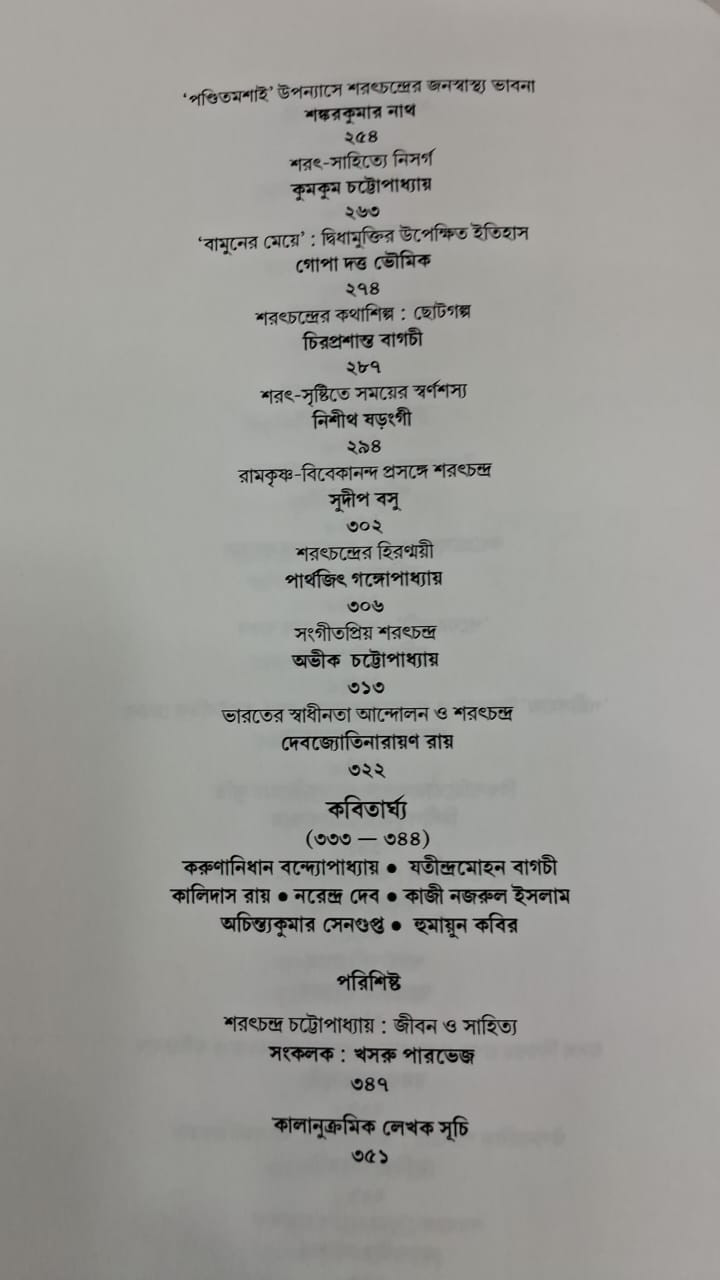 ‘পণ্ডিতমশাই’ উপন্যাসে শরৎচন্দ্রের জনস্বাস্থ্য ভাবনা
শঙ্করকুমার নাথ
২৫৪
শরৎ-সাহিত্যে নিসর্গ
কুমকুম চট্টোপাধ্যায়
২৬৩
‘বামুনের মেয়ে’ : দ্বিধামুক্তির উপেক্ষিত ইতিহাস
গোপা দত্ত ভৌমিক
২৭৪
শরৎচন্দ্রের কথাশিল্প : ছোটগল্প
চিরপ্রশান্ত বাগচী
২৮৭
শরৎ-সৃষ্টিতে সময়ের স্বর্ণশস্য
নিশীথ ষড়ংগী
২৯৪
রামকৃষ্ণ-বিবেকানন্দ প্রসঙ্গে শরৎচন্দ্র
সুদীপ বসু
৩০২
শরৎচন্দ্রের হিরণ্ময়ী
পার্থজিৎ গঙ্গোপাধ্যায়
৩০৬
সংগীতপ্রিয় শরৎচন্দ্র
অভীক চট্টোপাধ্যায়
৩১৩
ভারতের স্বাধীনতা আন্দোলন ও শরৎচন্দ্র
দেবজ্যোতিনারায়ণ রায়
৩২২
কবিতার্ঘ্য
(৩৩৩ — ৩৪৪)
করুণানিধান বন্দ্যোপাধ্যায় ● যতীন্দ্রমোহন বাগচী
কালিদাস রায় ● নরেন্দ্র দেব ● কাজী নজরুল ইসলাম
অচিন্ত্যকুমার সেনগুপ্ত ● হুমায়ুন কবির
পরিশিষ্ট
শরৎচন্দ্র চট্টোপাধ্যায় : জীবন ও সাহিত্য
সংকলক : খসরু পারভেজ
৩৪৭
কালানুক্রমিক লেখক সূচি
৩৫১